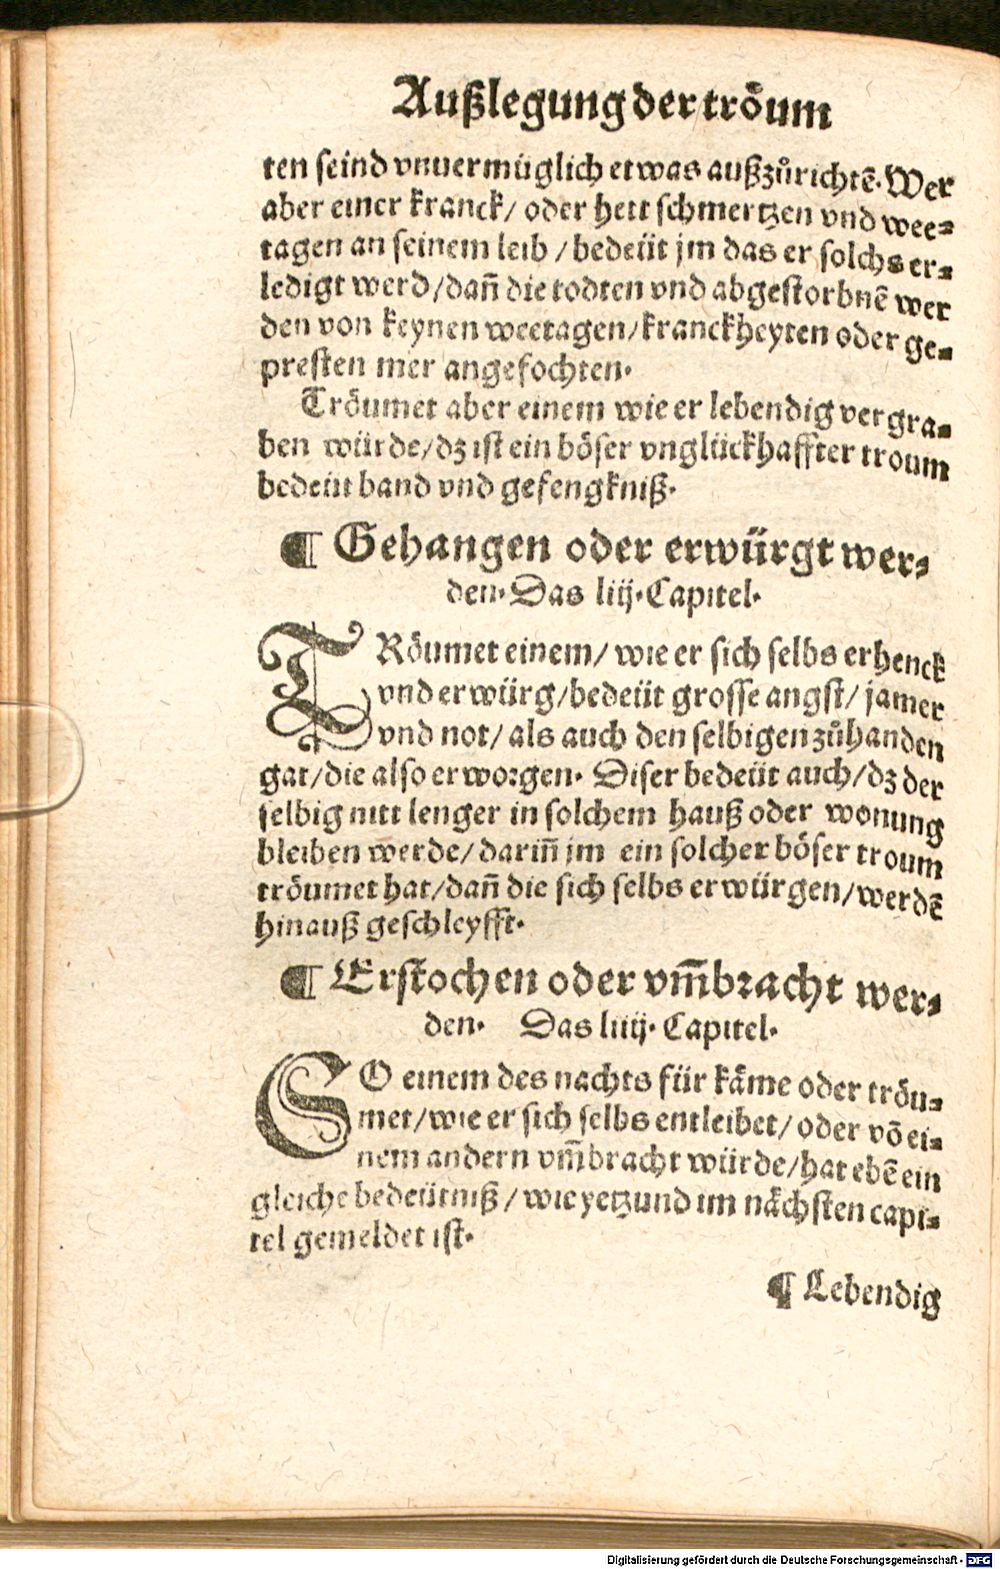 Außlegung der tröum
ten seind vnuermüglich etwas außzůrichtē. Wer
aber einer kranck/ oder hett schmertzen vnd wee-
tagen an seinem leib / bedeüt jm das er solchs er-
ledigt werd/dañ die todten vnd abgestorbnē wer
den von keynen weetagen/kranckheyten oder ge-
presten mer angefochten.
Tröumet aber einem wie er lebendig vergra-
ben würde/dz ist ein böser vnglückhaffter troum
bedeüt band vnd gefengkniß.
¶ Gehangen oder erwürgt wer-
den. Das liij. Capitel.
TRöumet einem/ wie er sich selbs erhenck
vnd erwürg/bedeüt grosse angst/ jamer
vnd not/ als auch den selbigen zůhanden
gat/die also erworgen. Diser bedeüt auch/dz der
selbig nitt lenger in solchem hauß oder wonung
bleiben werde/ dariñ jm ein solcher böser troum
tröumet hat/dañ die sich selbs erwürgen/werdē
hinauß geschleyfft.
¶ Erstochen oder vm̄bracht wer-
den. Das liiij. Capitel.
SO einem des nachts für käme oder tröu-
met/wie er sich selbs entleibet/ oder võ ei-
nem andern vm̄bracht würde/hat ebē ein
gleiche bedeütniß / wie yetzund im nächsten capi-
tel gemeldet ist.
¶ Lebendig
Digitalisierung gefördert durch die Deutsche Forschungsgemeinschaft - DFG